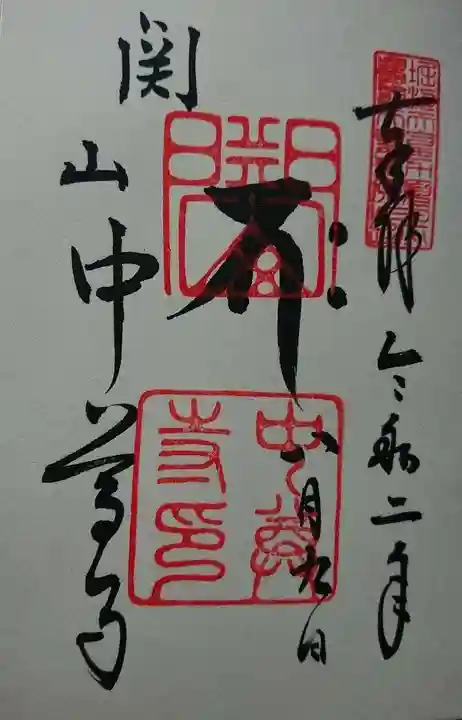 奉拝 令和二年
八月九日
関山中尊寺
中尊
寺印